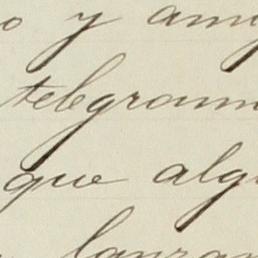 o y ami
telegram
que alg
lanza